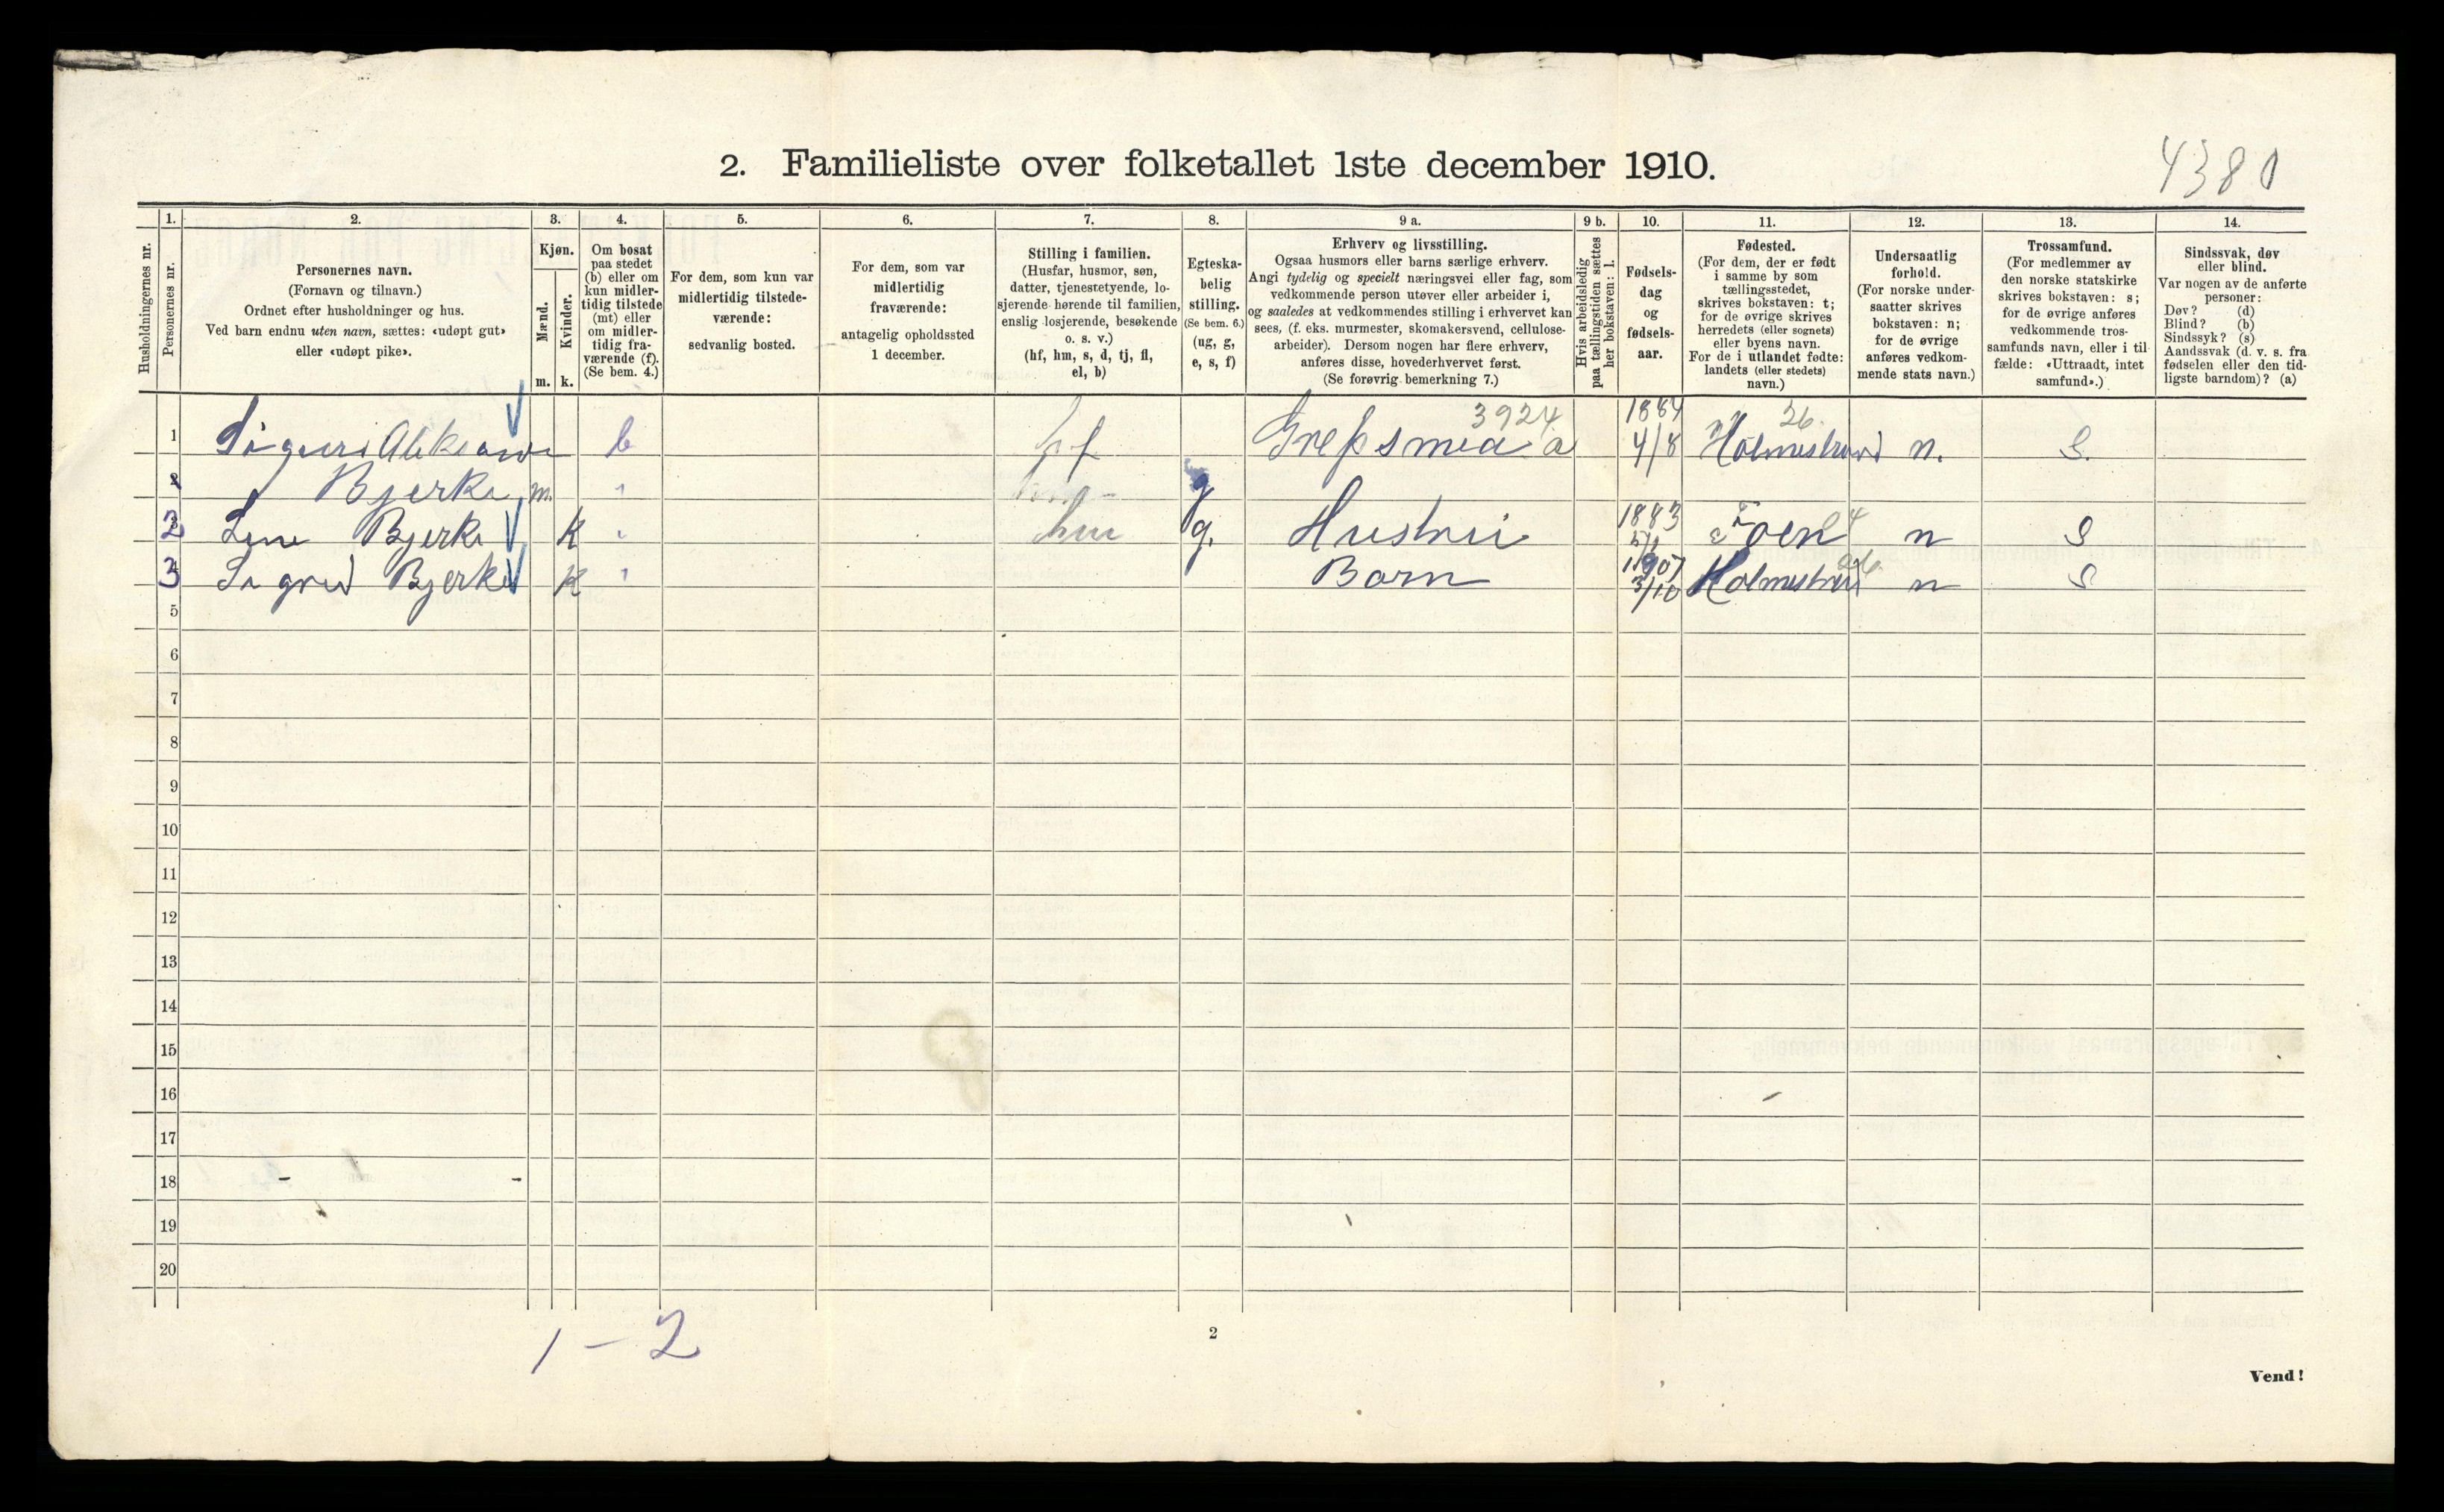 4380
2. Familieliste over folketallet 1ste december 1910.
1. 2. 3. 4. 5. 6. 7. 8. 9 a. 9 b. 10. 11. 12. 13. 14.
Husholdningernes nr.
Personernes nr.
Personernes navn.
(Fornavn og tilnavn.)
Ordnet efter husholdninger og hus.
Ved barn endnu uten navn, sættes: «udøpt gut»
eller «udøpt pike».
Kjøn.
Mænd.
Kvinder.
m. k.
Om bosat
paa stedet
(b) eller om
kun midler-
tidig tilstede
(mt) eller
om midler-
tidig fra-
værende (f).
(Se bem. 4.)
For dem, som kun var
midlertidig tilstede-
værende:
sedvanlig bosted.
For dem, som var
midlertidig
fraværende:
antagelig opholdssted
1 december.
Stilling i familien.
(Husfar, husmor, søn,
datter, tjenestetyende, lo-
sjerende hørende til familien,
enslig losjerende, besøkende
o. s. v.)
(hf, hm, s, d, tj, fl,
el, b)
Egteska-
belig
stilling.
(Se bem. 6.)
(ug, g,
e, s, f)
Erhverv og livsstilling.
Ogsaa husmors eller barns særlige erhverv.
Angi tydelig og specielt næringsvei eller fag, som
vedkommende person utøver eller arbeider i,
og saaledes at vedkommendes stilling i erhvervet kan
sees, (f. eks. murmester, skomakersvend, cellulose-
arbeider). Dersom nogen har flere erhverv,
anføres disse, hovederhvervet først.
(Se forøvrig bemerkning 7.)
Hvis arbeidsledig
paa tællingstiden sættes
her bokstaven: l.
Fødsels-
dag
og
fødsels-
aar.
Fødested.
(For dem, der er født
i samme by som
tællingsstedet,
skrives bokstaven: t;
for de øvrige skrives
herredets (eller sognets)
eller byens navn.
For de i utlandet fødte:
landets (eller stedets)
navn.)
Undersaatlig
forhold.
(For norske under-
saatter skrives
bokstaven: n;
for de øvrige
anføres vedkom-
mende stats navn.)
Trossamfund.
(For medlemmer av
den norske statskirke
skrives bokstaven: s;
for de øvrige anføres
vedkommende tros-
samfunds navn, eller i til-
fælde: «Uttraadt, intet
samfund».)
Sindssvak, døv
eller blind.
Var nogen av de anførte
personer:
Døv? (d)
Blind? (b)
Sindssyk? (s)
Aandssvak (d. v. s. fra
fødselen eller den tid-
ligste barndom)? (a)
3924 1884 26.
1 b hf a 4/8 Holmestrand n. S.
2 Bjerke m. g
2 Lene Bjerke K hm g. Hustru 1883 Foen n S
3 Sigrid Bjerke K Barn 1907 3/10 Holmestrand n S
5
6
7
8
9
10
11
12
13
14
15
16
17
18
19
20
1 - 2
2
Vend!